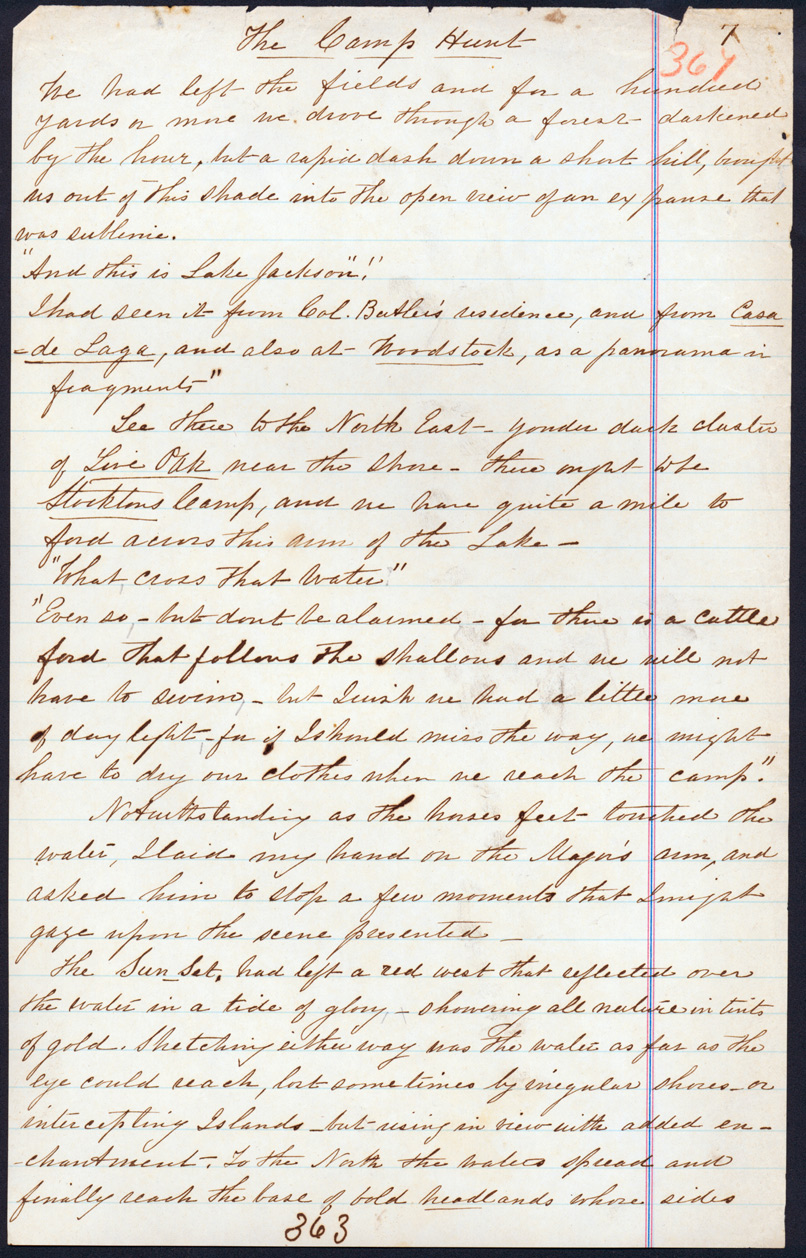 The Camp Hunt
7
364
We had left the fields and for a hundred
yards or more we drove through a forest darkened
by the hour, but a rapid dash down a short hill, brought
us out of this shade into the open view of an expanse that
was sublime.
"And this is Lake Jackson"!"
I had seen it from Col. Butler's residence, and from Casa
=de Laga, and also at Woodstock, as a panorama in
fragments"
See there to the North East - yonder dark cluster
of Live Oak near the shore - there ought to be
Stocktons Camp, and we have quite a mile to
ford across this arm of the Lake -
"What, cross that water"
"Even so, - but dont be alarmed - for there is a cattle
ford that follows the shallows and we will not
have to swim, - but I wish we had a little more
of day light - for if I should miss the way, we might
have to dry our clothes when we reach the camp."
Notwithstanding as the horses feet touched the
water, I laid my hand on the Major's arm, and
asked him to stop a few moments that I might
gaze upon the scene presented -
The Sun-Set, had left a red west that reflected over
the water in a tide of glory, - showering all nature in tints
of gold. Stretching either way was the water as far as the
eye could reach, lost sometimes by irregular shores - or
intercepting Islands - but rising in view with added en-
-chantment. To the North the waters spread and
finally reach the base of bold headlands whose sides
363